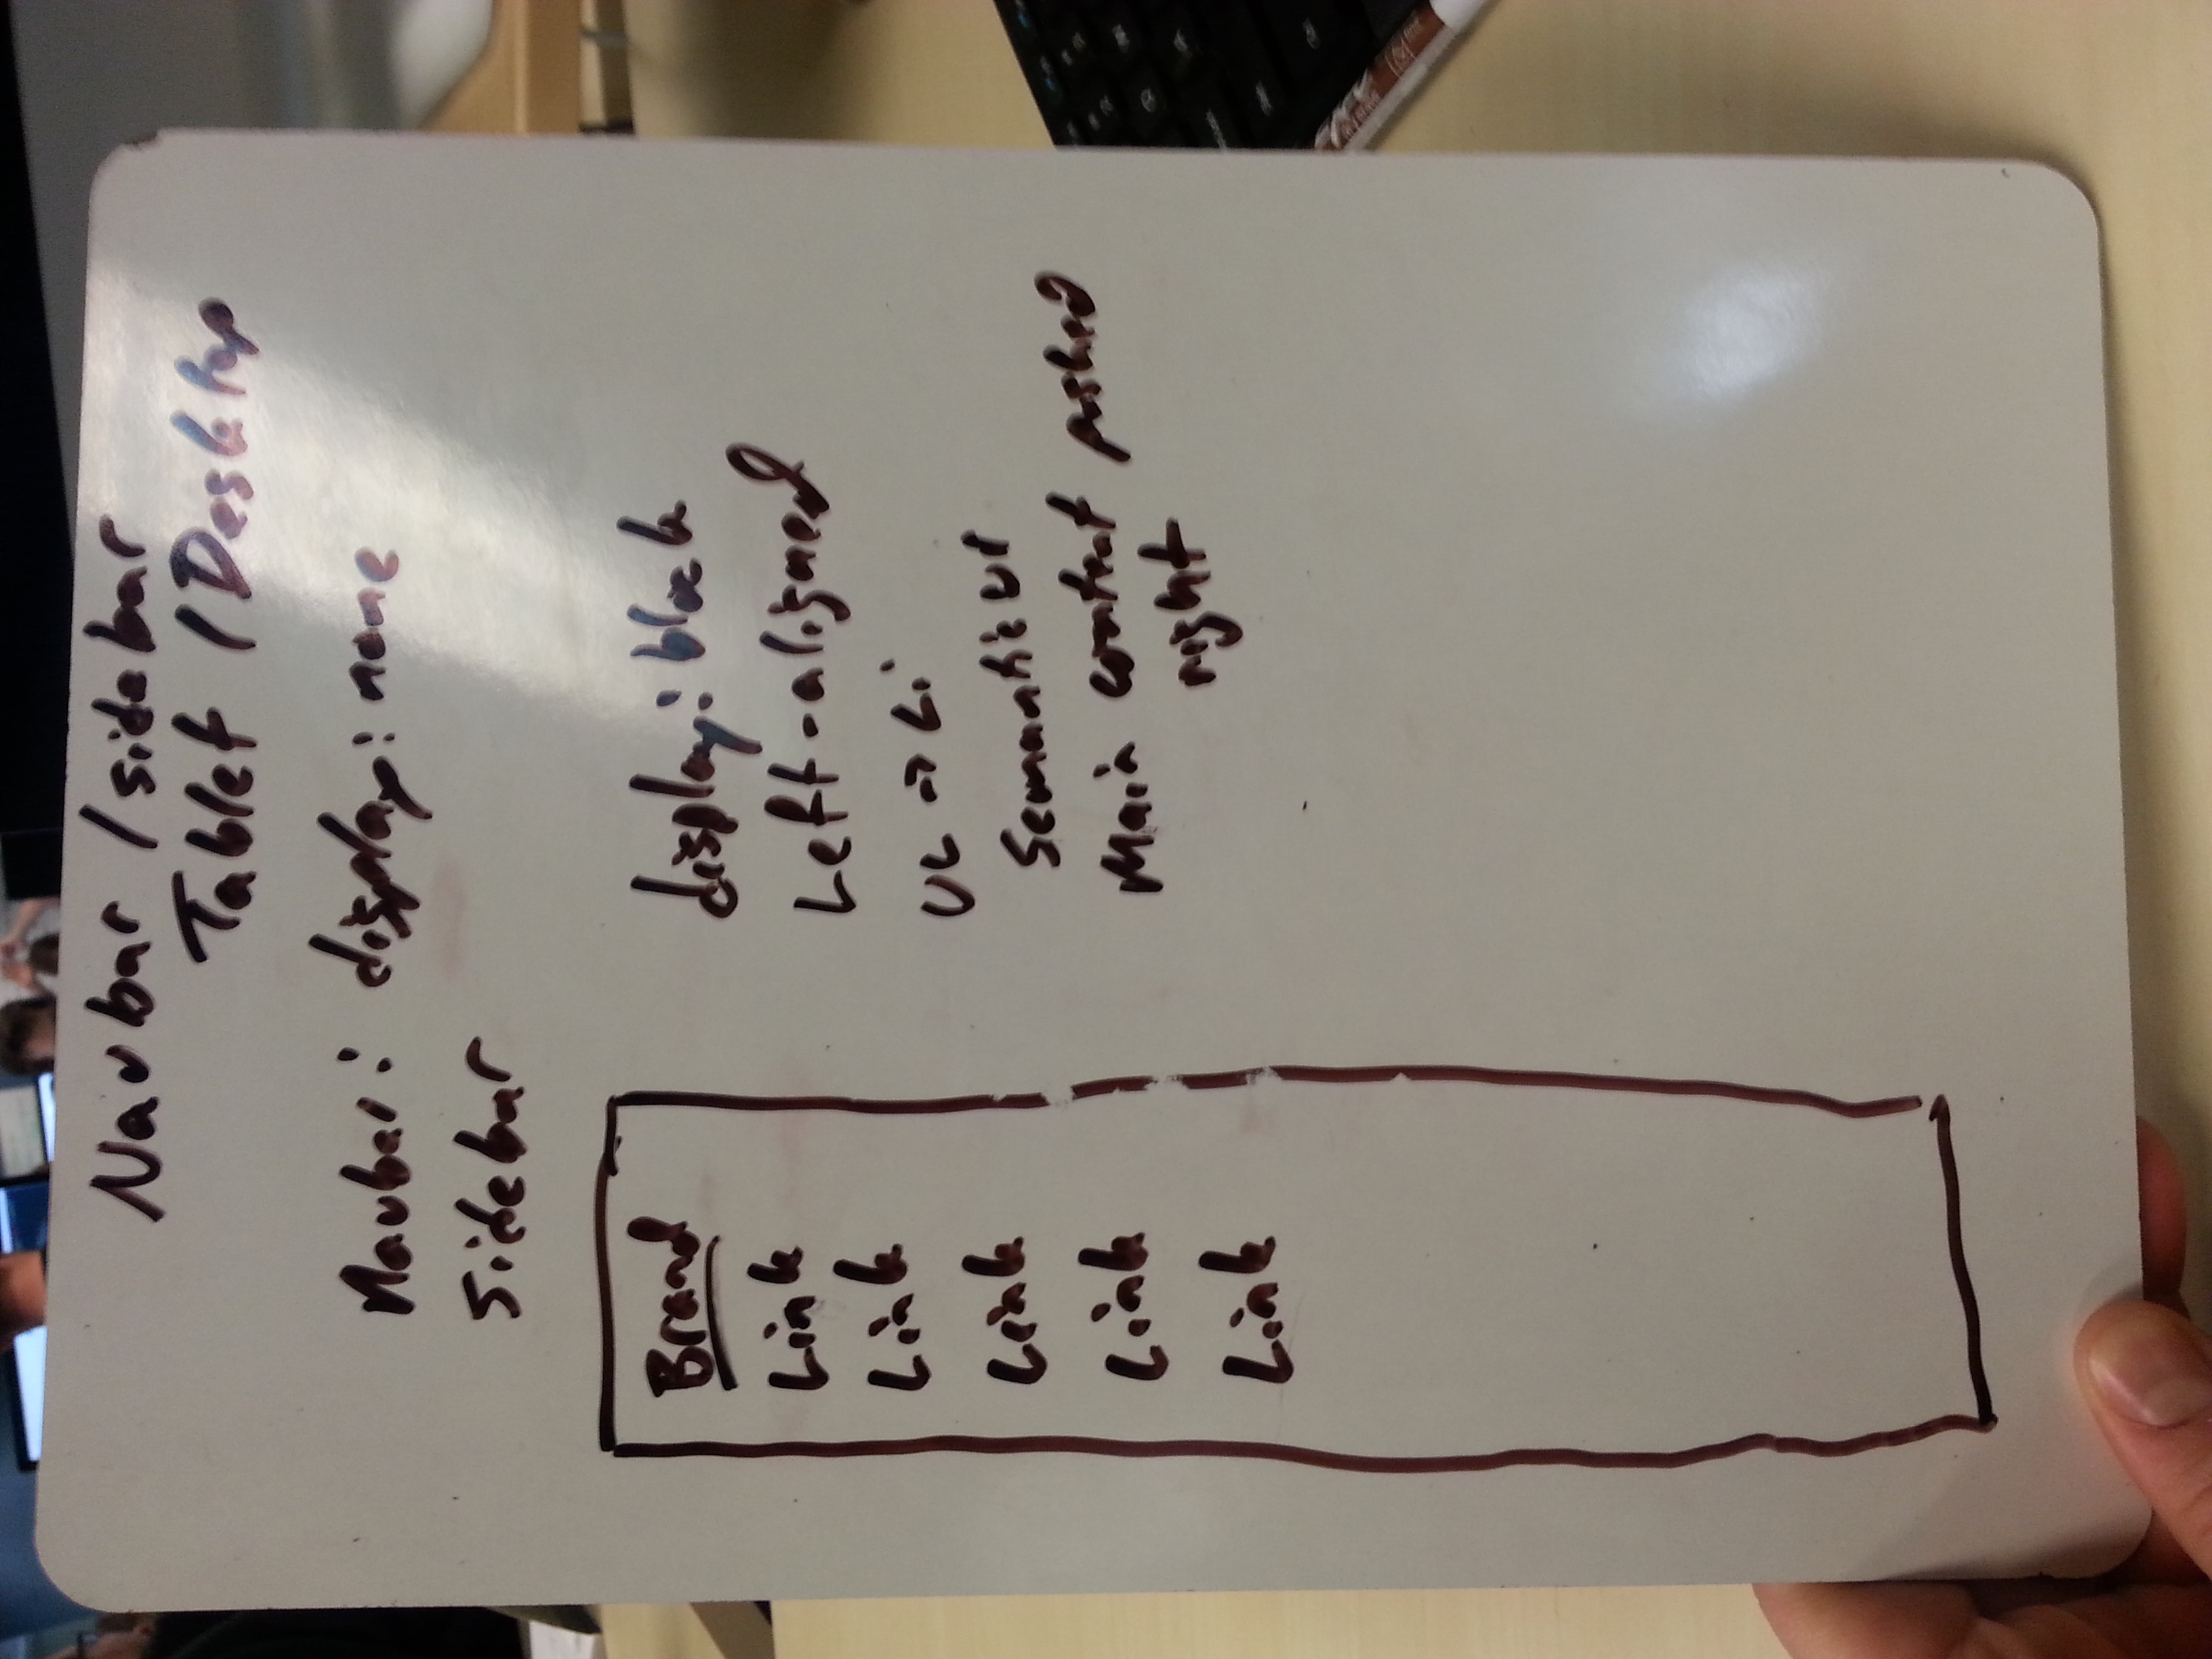 Navbar / sidebar
Tablet / Desktop
Navbar: display: none
Sidebar
Brand
Link
Link
Link
Link
Link
display: block
Left-aligned
UL → Li
Semantic UI
Main content pushed
right